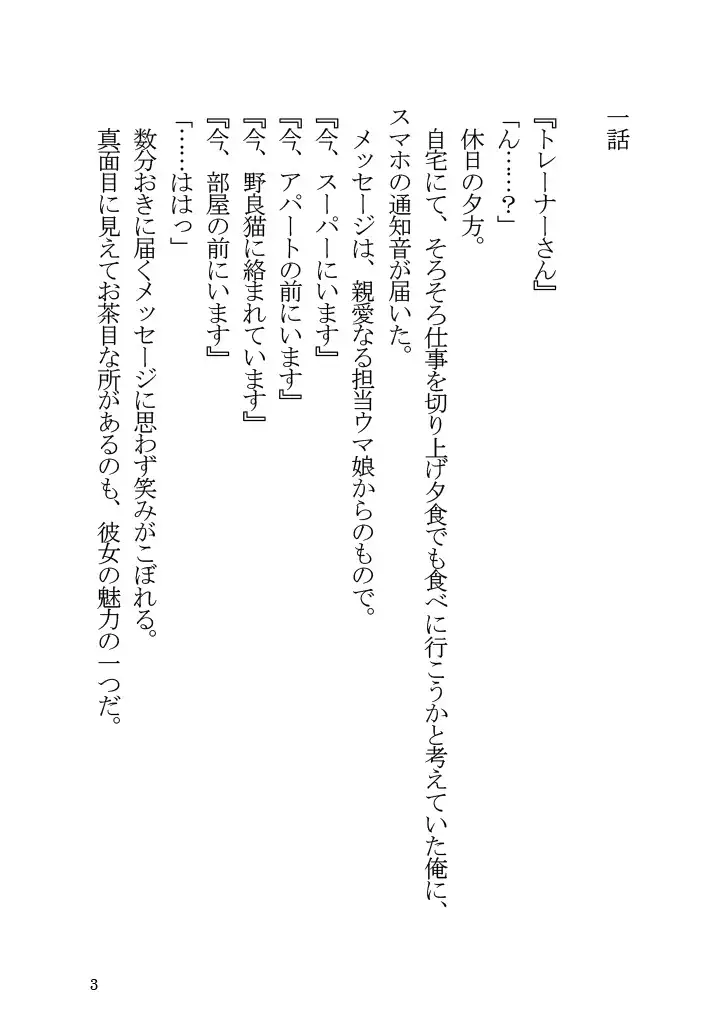 一話
『トレーナーさん』
「ん……？」
休日の夕方。
自宅にて、そろそろ仕事を切り上げ夕食でも食べに行こうかと考えていた俺に、
スマホの通知音が届いた。
メッセージは、親愛なる担当ウマ娘からのもので。
『今、スーパーにいます』
『今、アパートの前にいます』
『今、野良猫に絡まれています』
『今、部屋の前にいます』
「……ははっ」
数分おきに届くメッセージに思わず笑みがこぼれる。
真面目に見えてお茶目な所があるのも、彼女の魅力の一つだ。
3